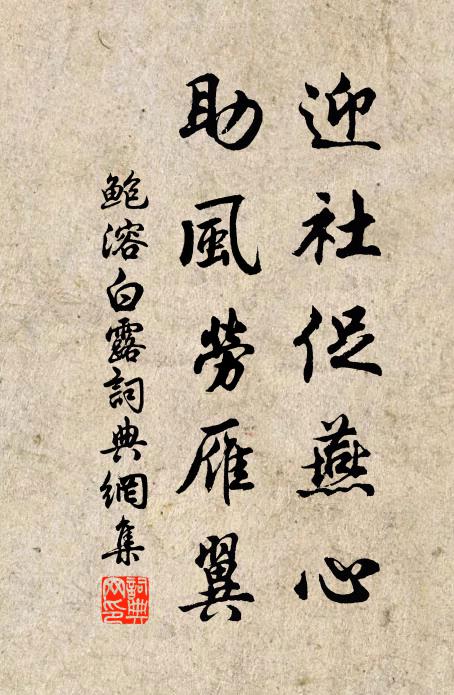 迎社促燕心
助風勞雁翼
鮑溶白露詞典網集
詞典网印